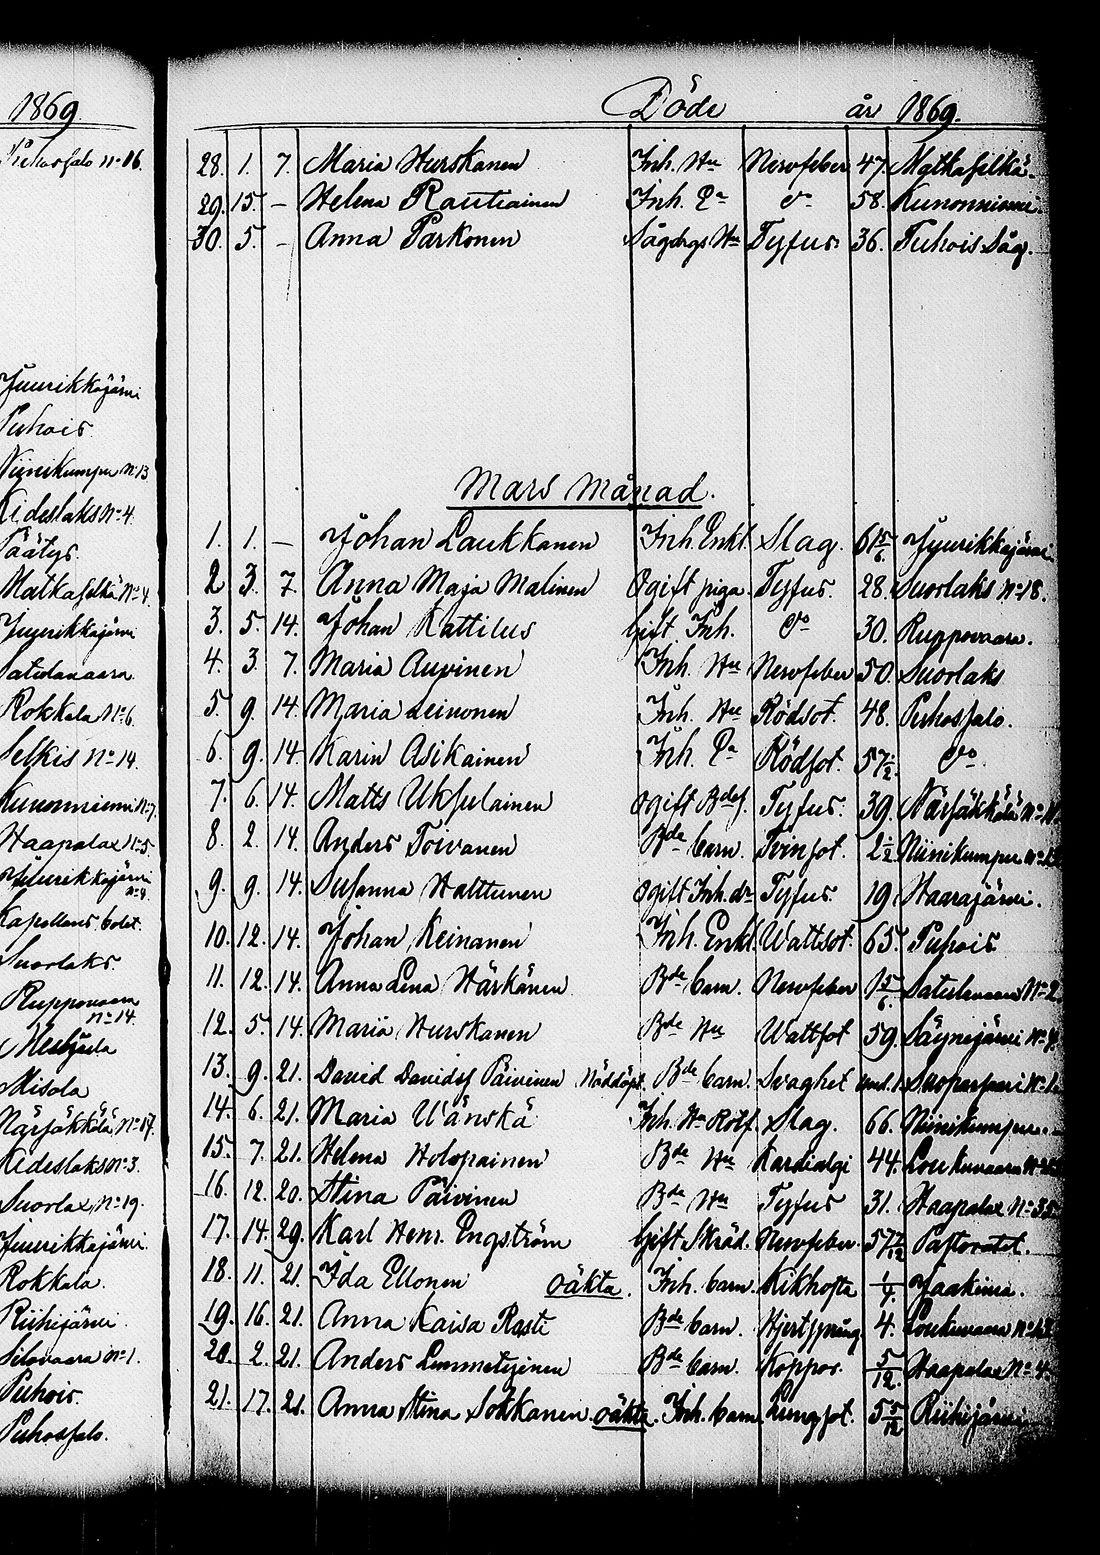 1869.
Puhosfalo No 16.
Juurikkajärvi
Puhois.
Niinikumpu No 13
Kideslaks No 4.
Päätys.
Matkaselkä No 4.
Juurikkajärvi
Satulavaara
Rokkala No 6.
Selkis No 14.
Kunonniemi No 7.
Haapalax No 5.
Juurikkajärvi
Kapellans bolet.
Suorlaks.
Ruppovaara
No 14.
Misola
Närsäkkälä No 17.
Kideslaks No 3.
Suorlax No 19.
Juurikkajärvi.
Rokkala.
Riihijärvi.
Silovaara No 1.
Puhois.
Puhosfalo.
Döde år 1869.
28. 1. 7. Maria Hurskanen Inh. Hu Nervfeber 47. Matkaselkä.
29. 15. – Helena Rautiainen Inh. Ea do 58. Kunonniemi.
30. 5. – Anna Parkonen Sågdrgs Hu Tyfus. 36. Puhois Såg.
Mars Månad.
1. 1. – Johan Laukkanen Inh. Enkl. Slag. 61 5/6. Juurikkajärvi
2 3. 7. Anna Maja Malinen Ogift piga. Tyfus. 28. Suorlaks No 18.
3. 5. 14. Johan Kattilus Gift Inh. do 30. Ruppovaara.
4. 3. 7. Maria Auvinen Inh. Hu Nervfeber 50. Suorlaks
5. 9. 14. Maria Leinonen Inh. Hu Rödsot. 48. Puhosfalo.
6. 9. 14. Karin Asikainen Inh. Ea Rödsot. 57 1/2. do
7. 6. 14. Matts Uksulainen Ogift Bdes. Tyfus. 39. Närsäkkälä No
8. 2. 14. Anders Toivanen Bde barn. Tvinsot. 2 1/2 Niinikumpu No
9. 9. 14. Susanna Halttunen Ogift Inh. dr Tyfus. 19. Haarajärvi.
10. 12. 14. Johan Keinanen Inh. Enkl. Wattsot. 65. Puhois
11. 12. 14. Anna Lena Härkänen Bde barn. Nervfeber 1 5/6. Satulavaara No 2
12. 5. 14. Maria Hurskanen Bde Hu Wattsot 59. Säynejärvi No
13. 9. 21. David Davidsf Päivinen Nöddöpt. Bde barn. Svaghet und. 1.
14. 6. 21. Maria Wänskä Inh. Hu Rotf. Slag. 66. Niinikumpu.
15. 7. 21. Helena Holopainen Bde Hu Kardialgi 44. Loukuvaara No
16. 12. 20. Stina Päivinen Bde Hu Tyfus 31. Haapalax No 35
17. 14. 29. Karl Henr. Engström Gift Skräd. Nervfeber. 57 7/12 Pastoratet.
18. 11. 21. Ida Ellonen oäkta. Inh. barn. Kikhosta 1/4. Jaakima.
19. 16. 21. Anna Kaisa Raste Bde barn. Hjertsprång. 4. Loukuvaara No 13
20. 2. 21. Anders Lummetyinen Bde barn. Koppor. 5/12. Haapalax No 4.
21. 17. 21. Anna Stina Sokkanen. oäkta. Inh. barn Lungsot. 5 5/12 Riihijärvi